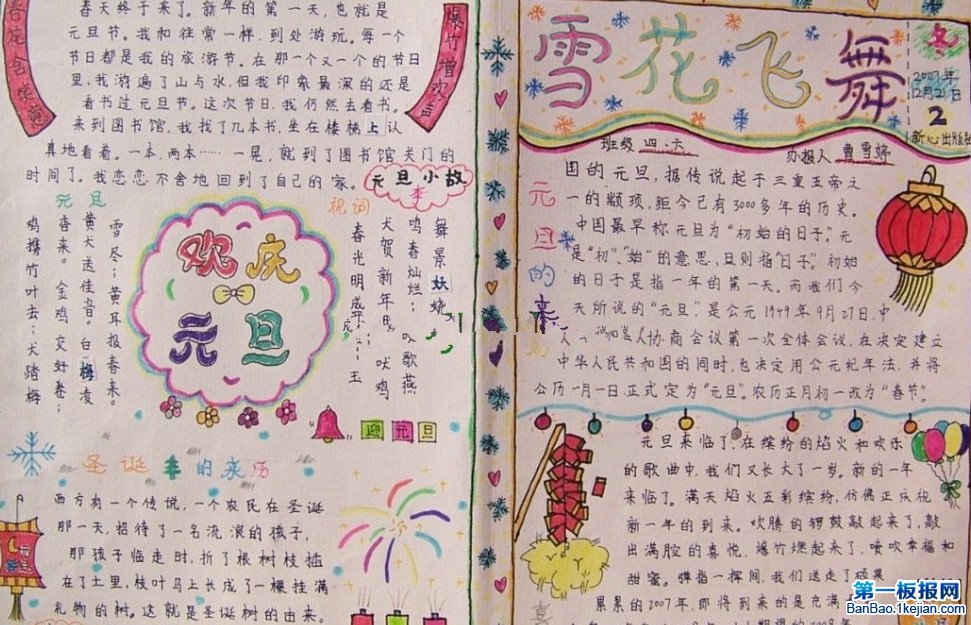 春天终于来了。新年的第一天,也就是
元旦节。我和往常一样,到处游玩。每一个
节日都是我的旅游节。在那一个又一个的节日
里,我游遍了山与水,但我印象最深的还是
看书过元旦节。这次节日,我仍然去看书。
来到图书馆,我找了几本书,坐在楼梯上认
真地看着。一本,两本……一晃,就到了图书馆关门的
时间了。我恋恋不舍地回到了自己的家。
爆竹增欢声
元旦小故
祝词
元旦
雪尽;黄耳报春来。
黄犬送佳音。白梅凌
春来。金鸡交好卷;
鸣携竹叶去;犬踏梅
欢庆
元旦
舞景妖娆
鸣春灿烂;歌燕
犬贺新年
吠鸡
春光明
玉
迎元旦
圣诞的来历
西方有一个传说,一个农民在圣诞
那一天,招待了一名流浪的孩子,
那孩子临走时,折了根树枝插
在了土里,枝叶马上长成了一棵挂满
礼物的树。这就是圣诞树的由来。
雪花飞舞
冬
2007年
12月21日
2
新心出版社
班级 四.六
办报人 曹雪婷
元旦的来
国的元旦,据传说起于三皇五帝之
一的颛顼,距今已有3000多年的历史。
中国最早称元旦为“初始的日子”。元
是“初”、“始”的意思,旦则指“日子”。初始
的日子是指一年的第一天。而我们今
天所说的“元旦”,是公元1949年9月27日,中
协商会议第一次全体会议,在决定建立
中华人民共和国的同时,也决定用公元纪年法,并将
公历一月一日正式定为“元旦”。农历正月初一改为“春节”。
元旦来临了,在缤纷的焰火和欢乐
的歌曲中,我们又长大了一岁。新的一年
来临了。满天焰火五彩缤纷,仿佛正庆祝
新一年的到来。欢腾的锣鼓敲起来了,敲
出满腔的喜悦,爆竹燃起来了,喷吹幸福和
甜蜜。弹指一挥间,我们送走了硕果
累累的2007年,即将到来的是充满
2008年
第一板报网
BanBao.1kejian.com